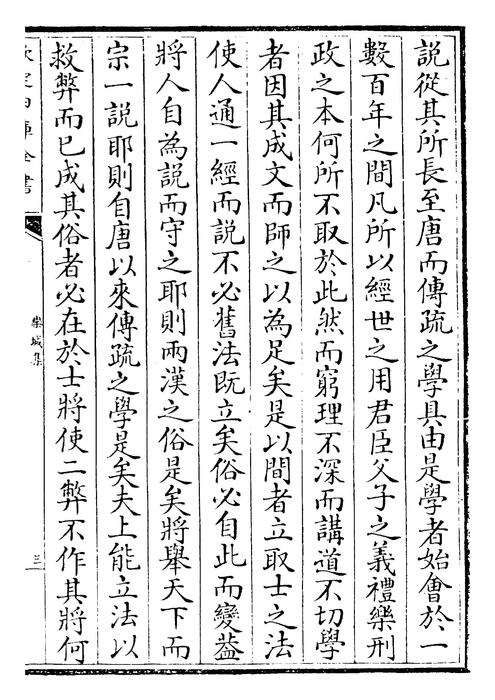 說從其所長至唐而傳疏之學具由是學者始會於一
數百年之間凡所以經世之用君臣父子之義禮樂刑
政之本何所不取於此然而窮理不深而講道不切學
者因其成文而師之以為足矣是以間者立取士之法
使人通一經而說不必舊法既立矣俗必自此而變葢
將人自為說而守之耶則兩漢之俗是矣將舉天下而
宗一說耶則自唐以來傳疏之學是矣夫上能立法以
救弊而已成其俗者必在於士將使二弊不作其將何
欽定四庫全書
欒城集
三